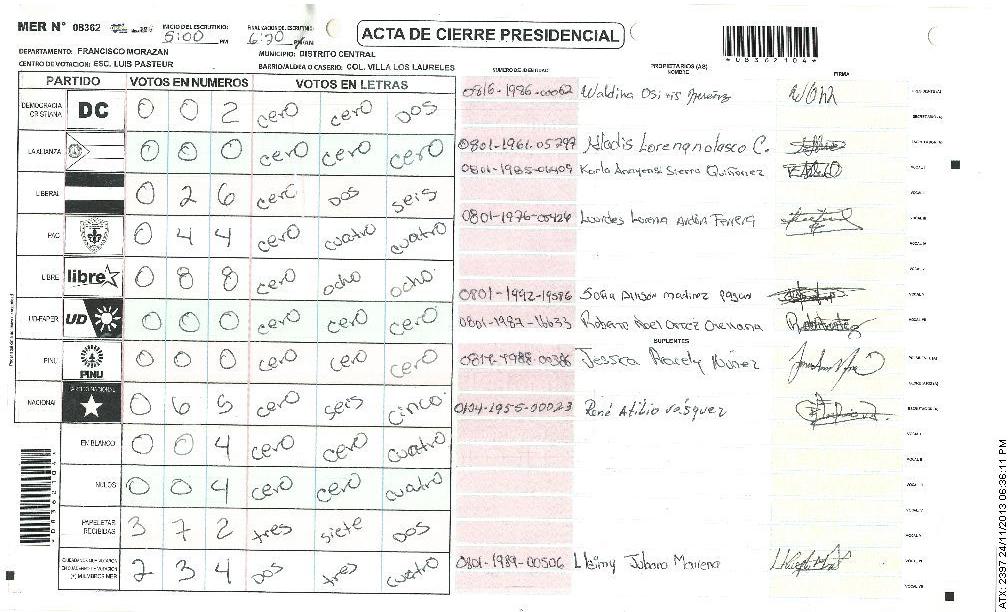 MER N° 08362 INICIO DEL ESCRUTINIO: 5:00 PM FINALIZACION DEL ESCRUTINIO: 6:30 PM/AM
ACTA DE CIERRE PRESIDENCIAL
*08362104*
DEPARTAMENTO: FRANCISCO MORAZAN MUNICIPIO: DISTRITO CENTRAL
CENTRO DE VOTACION: ESC. LUIS PASTEUR BARRIO/ALDEA O CASERIO: COL. VILLA LOS LAURELES
NUMERO DE IDENTIDAD PROPIETARIOS (AS) NOMBRE FIRMA
PARTIDO VOTOS EN NUMEROS VOTOS EN LETRAS
DEMOCRACIA CRISTIANA DC 0 0 2 cero cero dos
LA ALIANZA 0 0 0 cero cero cero
LIBERAL 0 2 6 cero dos seis
PAC 0 4 4 cero cuatro cuatro
LIBRE libre 0 8 8 cero ocho ocho
UD-FAPER UD 0 0 0 cero cero cero
PINU PINU 0 0 0 cero cero cero
NACIONAL PARTIDO NACIONAL 0 6 5 cero seis cinco
EN BLANCO 0 0 4 cero cero cuatro
NULOS 0 0 4 cero cero cuatro
PAPELETAS RECIBIDAS 3 7 2 tres siete dos
CIUDADANOS QUE VOTARON EN CUADERNO DE VOTACION (+) MIEMBROS MER 2 3 4 dos tres cuatro
0816-1986-00062 Waldina Osiris
0801-1961-05299 Gladis Lorena nolasco C.
0801-1985-01409 Karla Sierra Quiñonez
0801-1976-05426 Lourdes Lorena
0801-1992-19586 Sofia
0801-1987-16633 Roberto Noel Ortez Orellana
SUPLENTES
Jessica Aracely Núñez
René Atilio Vásquez
0801-1989-00506
*08362104*
ATX: 2397 24/11/2013 06:36:11 PM